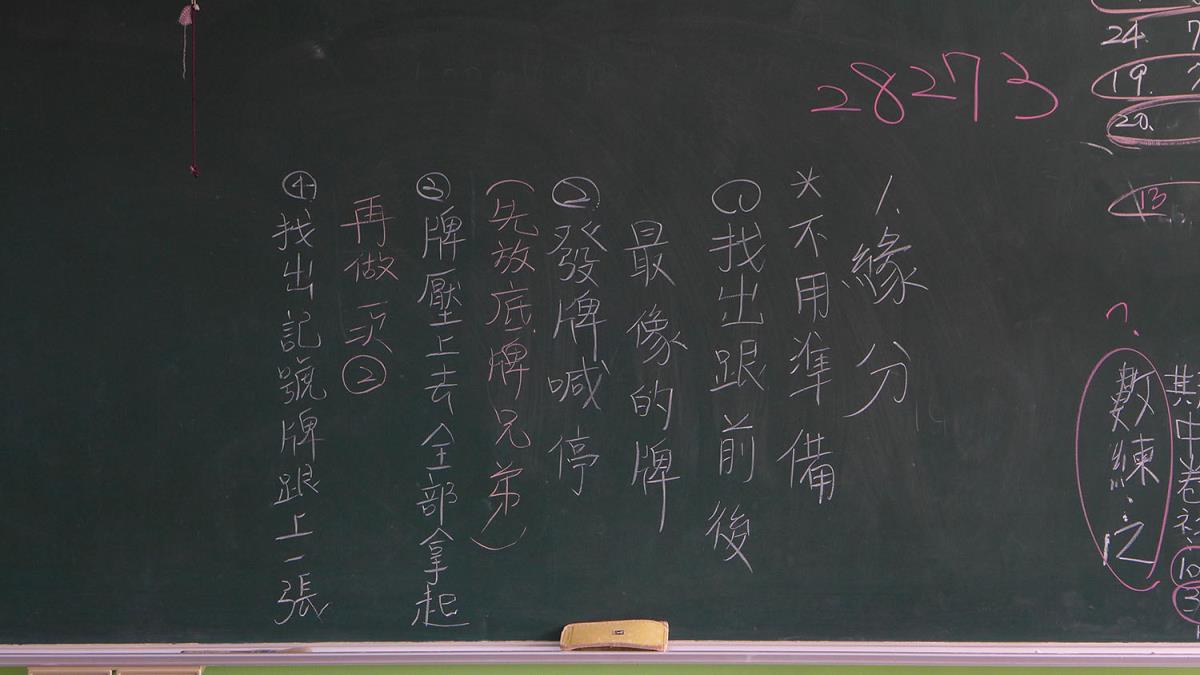 28273
24.
19.
20.
13
1.緣分
*不用準備
①找出跟前後
最像的牌
②發牌喊停
(先放底牌兄弟)
③牌壓上去全部拿起
再做一次②
④找出記號牌跟上一張
?
數練.
其中卷
10
3